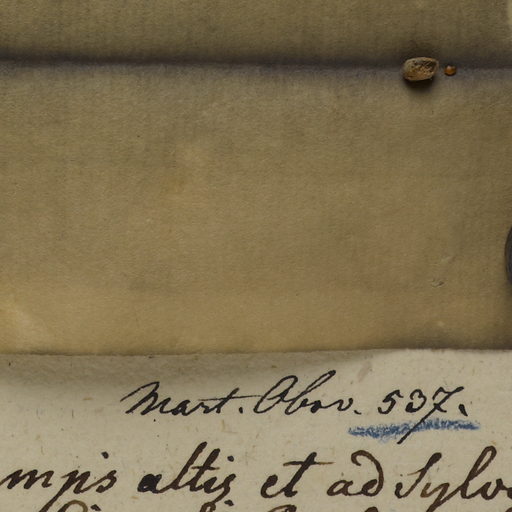 Mart. Obov. 537.
mpis altis et ad Sylv